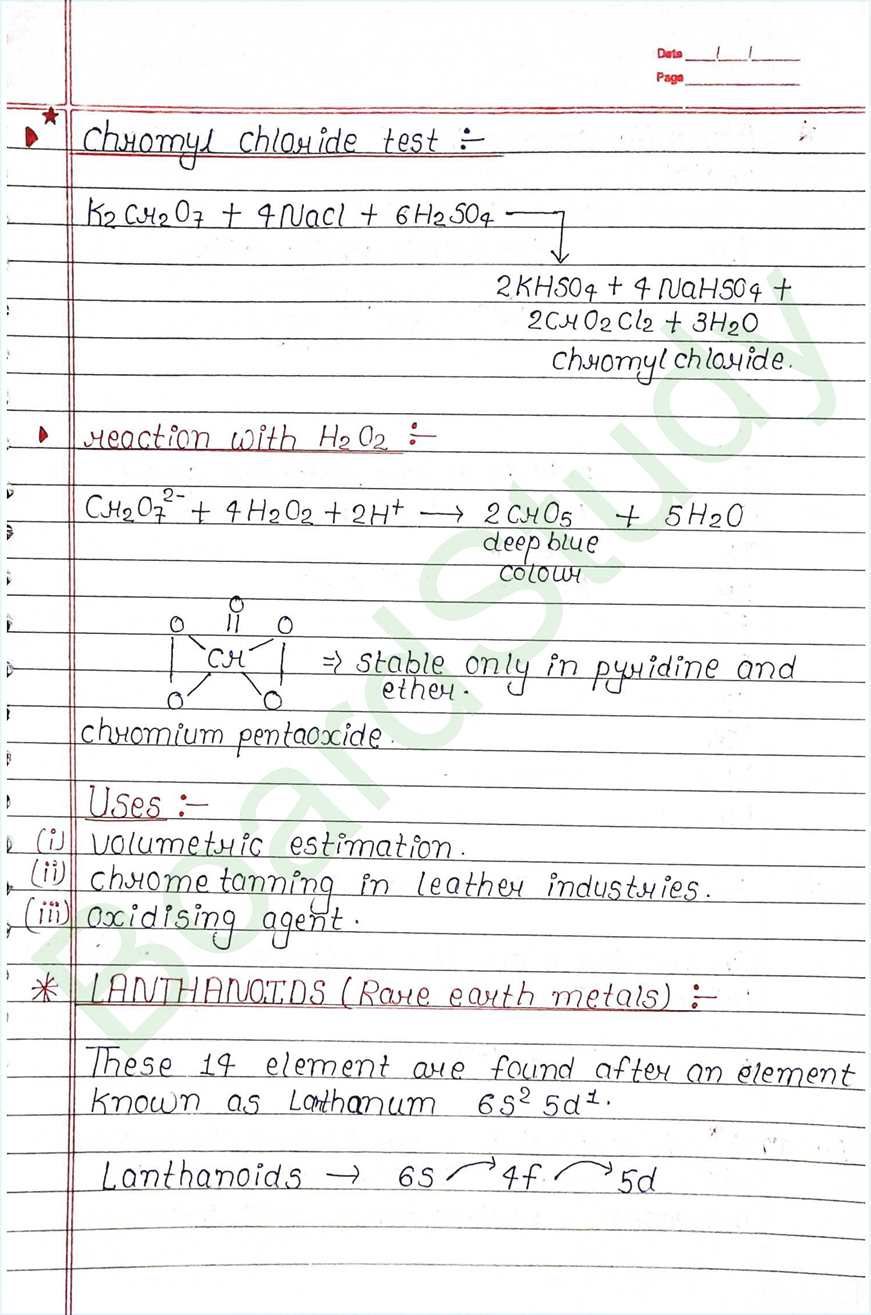 Date __/__/__
Page ________
★
Chromyl chloride test :-
K2Cr2O7 + 4NaCl + 6H2SO4 →
2KHSO4 + 4NaHSO4 +
2CrO2Cl2 + 3H2O
Chromyl chloride.
reaction with H2O2 :-
Cr2O7²⁻ + 4H2O2 + 2H⁺ → 2CrO5 + 5H2O
deep blue
colour
O
O || O
| Cr | ⇒ stable only in pyridine and
ether.
O O
chromium pentaoxide.
Uses :-
(i) volumetric estimation.
(ii) chrome tanning in leather industries.
(iii) oxidising agent.
* LANTHANOIDS (Rare earth metals) :-
These 14 element are found after an element
known as Lanthanum 6s² 5d¹.
Lanthanoids → 6s → 4f → 5d
BoardStudy